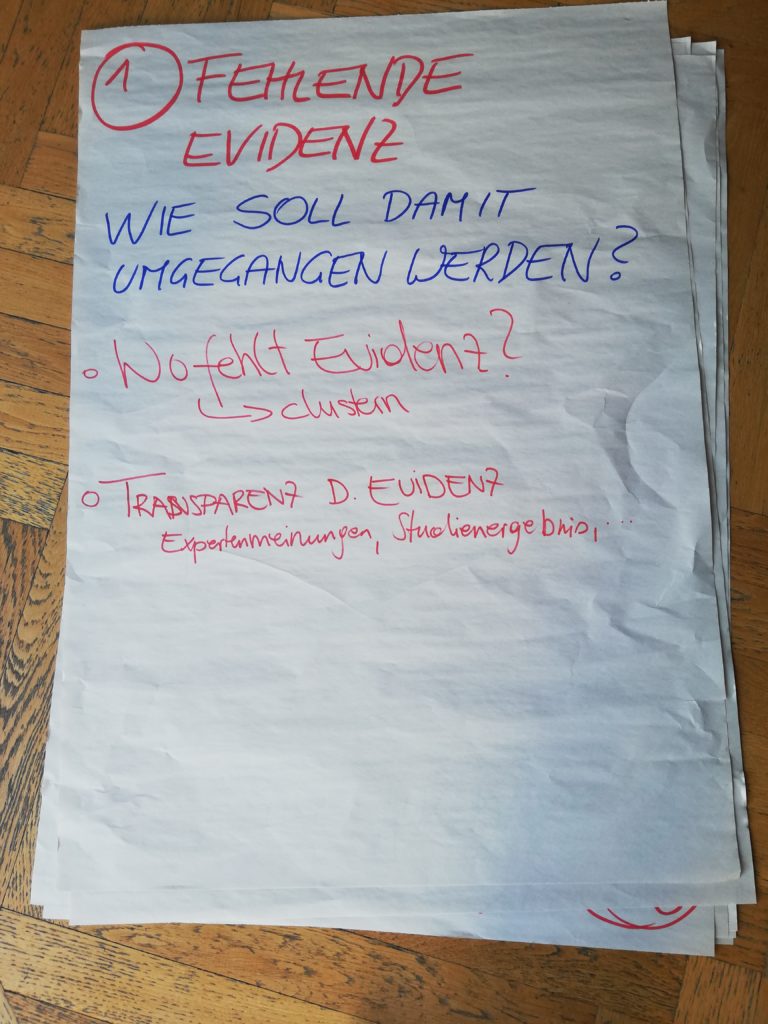 1 FEHLENDE
EVIDENZ
WIE SOLL DAMIT
UMGEGANGEN WERDEN?
o Wo fehlt Evidenz?
↳ clustern
o TRANSPARENZ D. EVIDENZ
Expertenmeinungen, Studienergebnis, ...